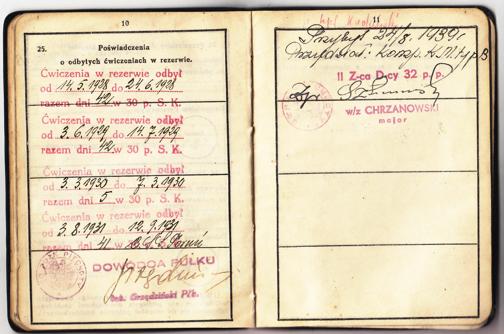 10
25. Poświadczenia
o odbytych ćwiczeniach w rezerwie.
Ćwiczenia w rezerwie odbył
od 14.5.1928 do 24.6.1928
razem dni 42 w 30 p. S. K.
Ćwiczenia w rezerwie odbył
od 3.6.1929 do 14.7.1929
razem dni 42 w 30 p. S. K.
Ćwiczenia w rezerwie odbył
od 3.3.1930 do 7.3.1930
razem dni 5 w 30 p. S. K.
Ćwiczenia w rezerwie odbył
od 3.8.1931 do 12.9.1931
razem dni 41 w
DOWÓDCA PUŁKU
Grędziński Płk.
11
Przybył 24/8. 1939r.
Przydział: Komp.
II Z-ca D-cy 32 p. p.
w/z CHRZANOWSKI
major